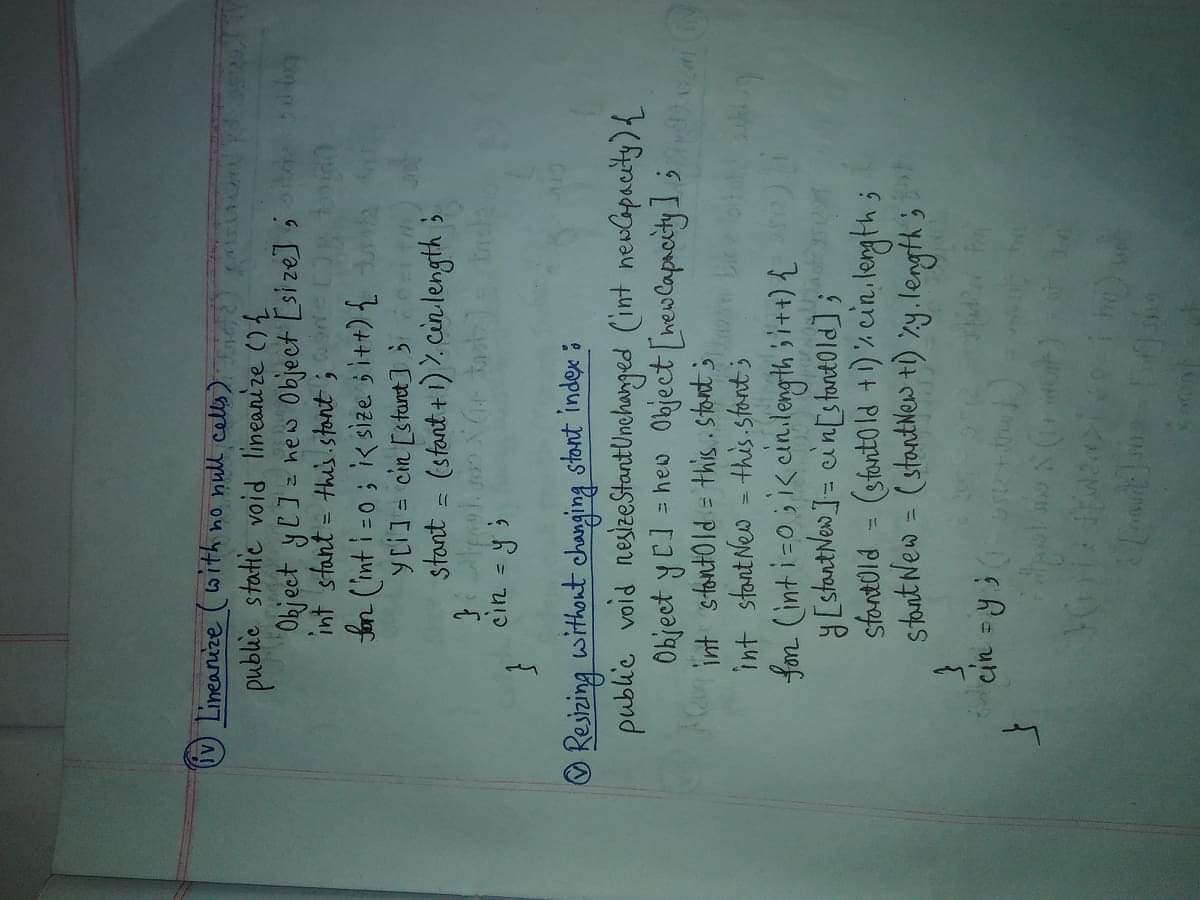 (iv) Linearize (with no null cells)
public static void linearize () {
Object y [ ] = new Object [size] ;
int start = this.start ;
for (int i = 0 ; i < size ; i++) {
y [i] = cir [start] ;
start = (start + 1) % cir.length ;
}
cir = y ;
}
(v) Resizing without changing start index :
public void resizeStartUnchanged (int newCapacity) {
Object y [ ] = new Object [newCapacity] ;
int startOld = this.start ;
int startNew = this.start ;
for (int i = 0 ; i < cir.length ; i++) {
y [startNew] = cir [startOld] ;
startOld = (startOld + 1) % cir.length ;
startNew = (startNew + 1) % y.length ;
}
cir = y ;
}